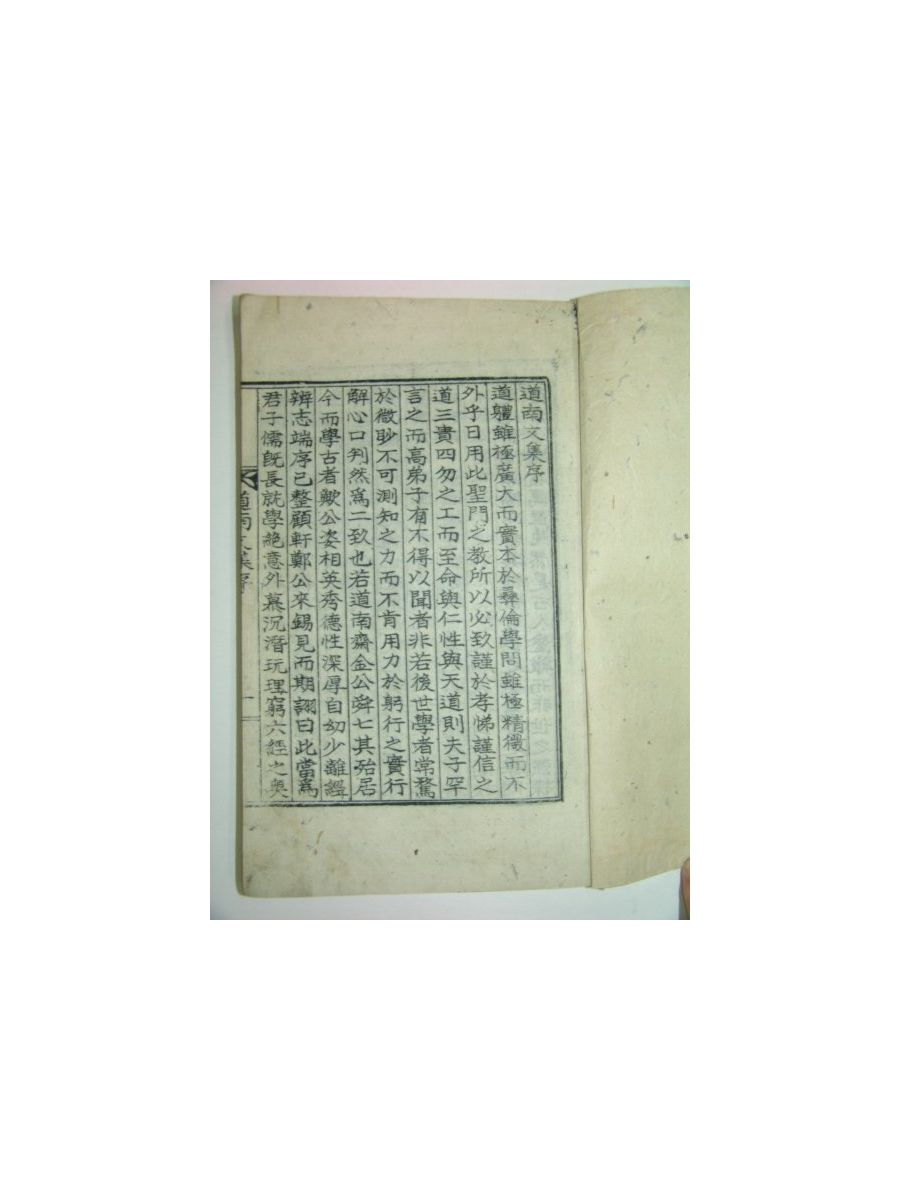 道南文集序
道體雖極廣大而實本於彛倫學問雖極精微而不
外乎日用此聖門之教所以必致謹於孝悌謹信之
道三貴四勿之工而至命與仁性與天道則夫子罕
言之而高弟子有不得以聞者非若後世學者常騖
於微眇不可測知之力而不肯用力於躬行之實行
解心口判然爲二致也若道南齋金公舜七其殆居
今而學古者歟公姿相英秀德性深厚自幼少離經
辨志端序已整顧軒鄭公來錫見而期詡曰此當爲
君子儒旣長就學絶意外慕沉潛玩理窮六經之奧
道南文集序
一